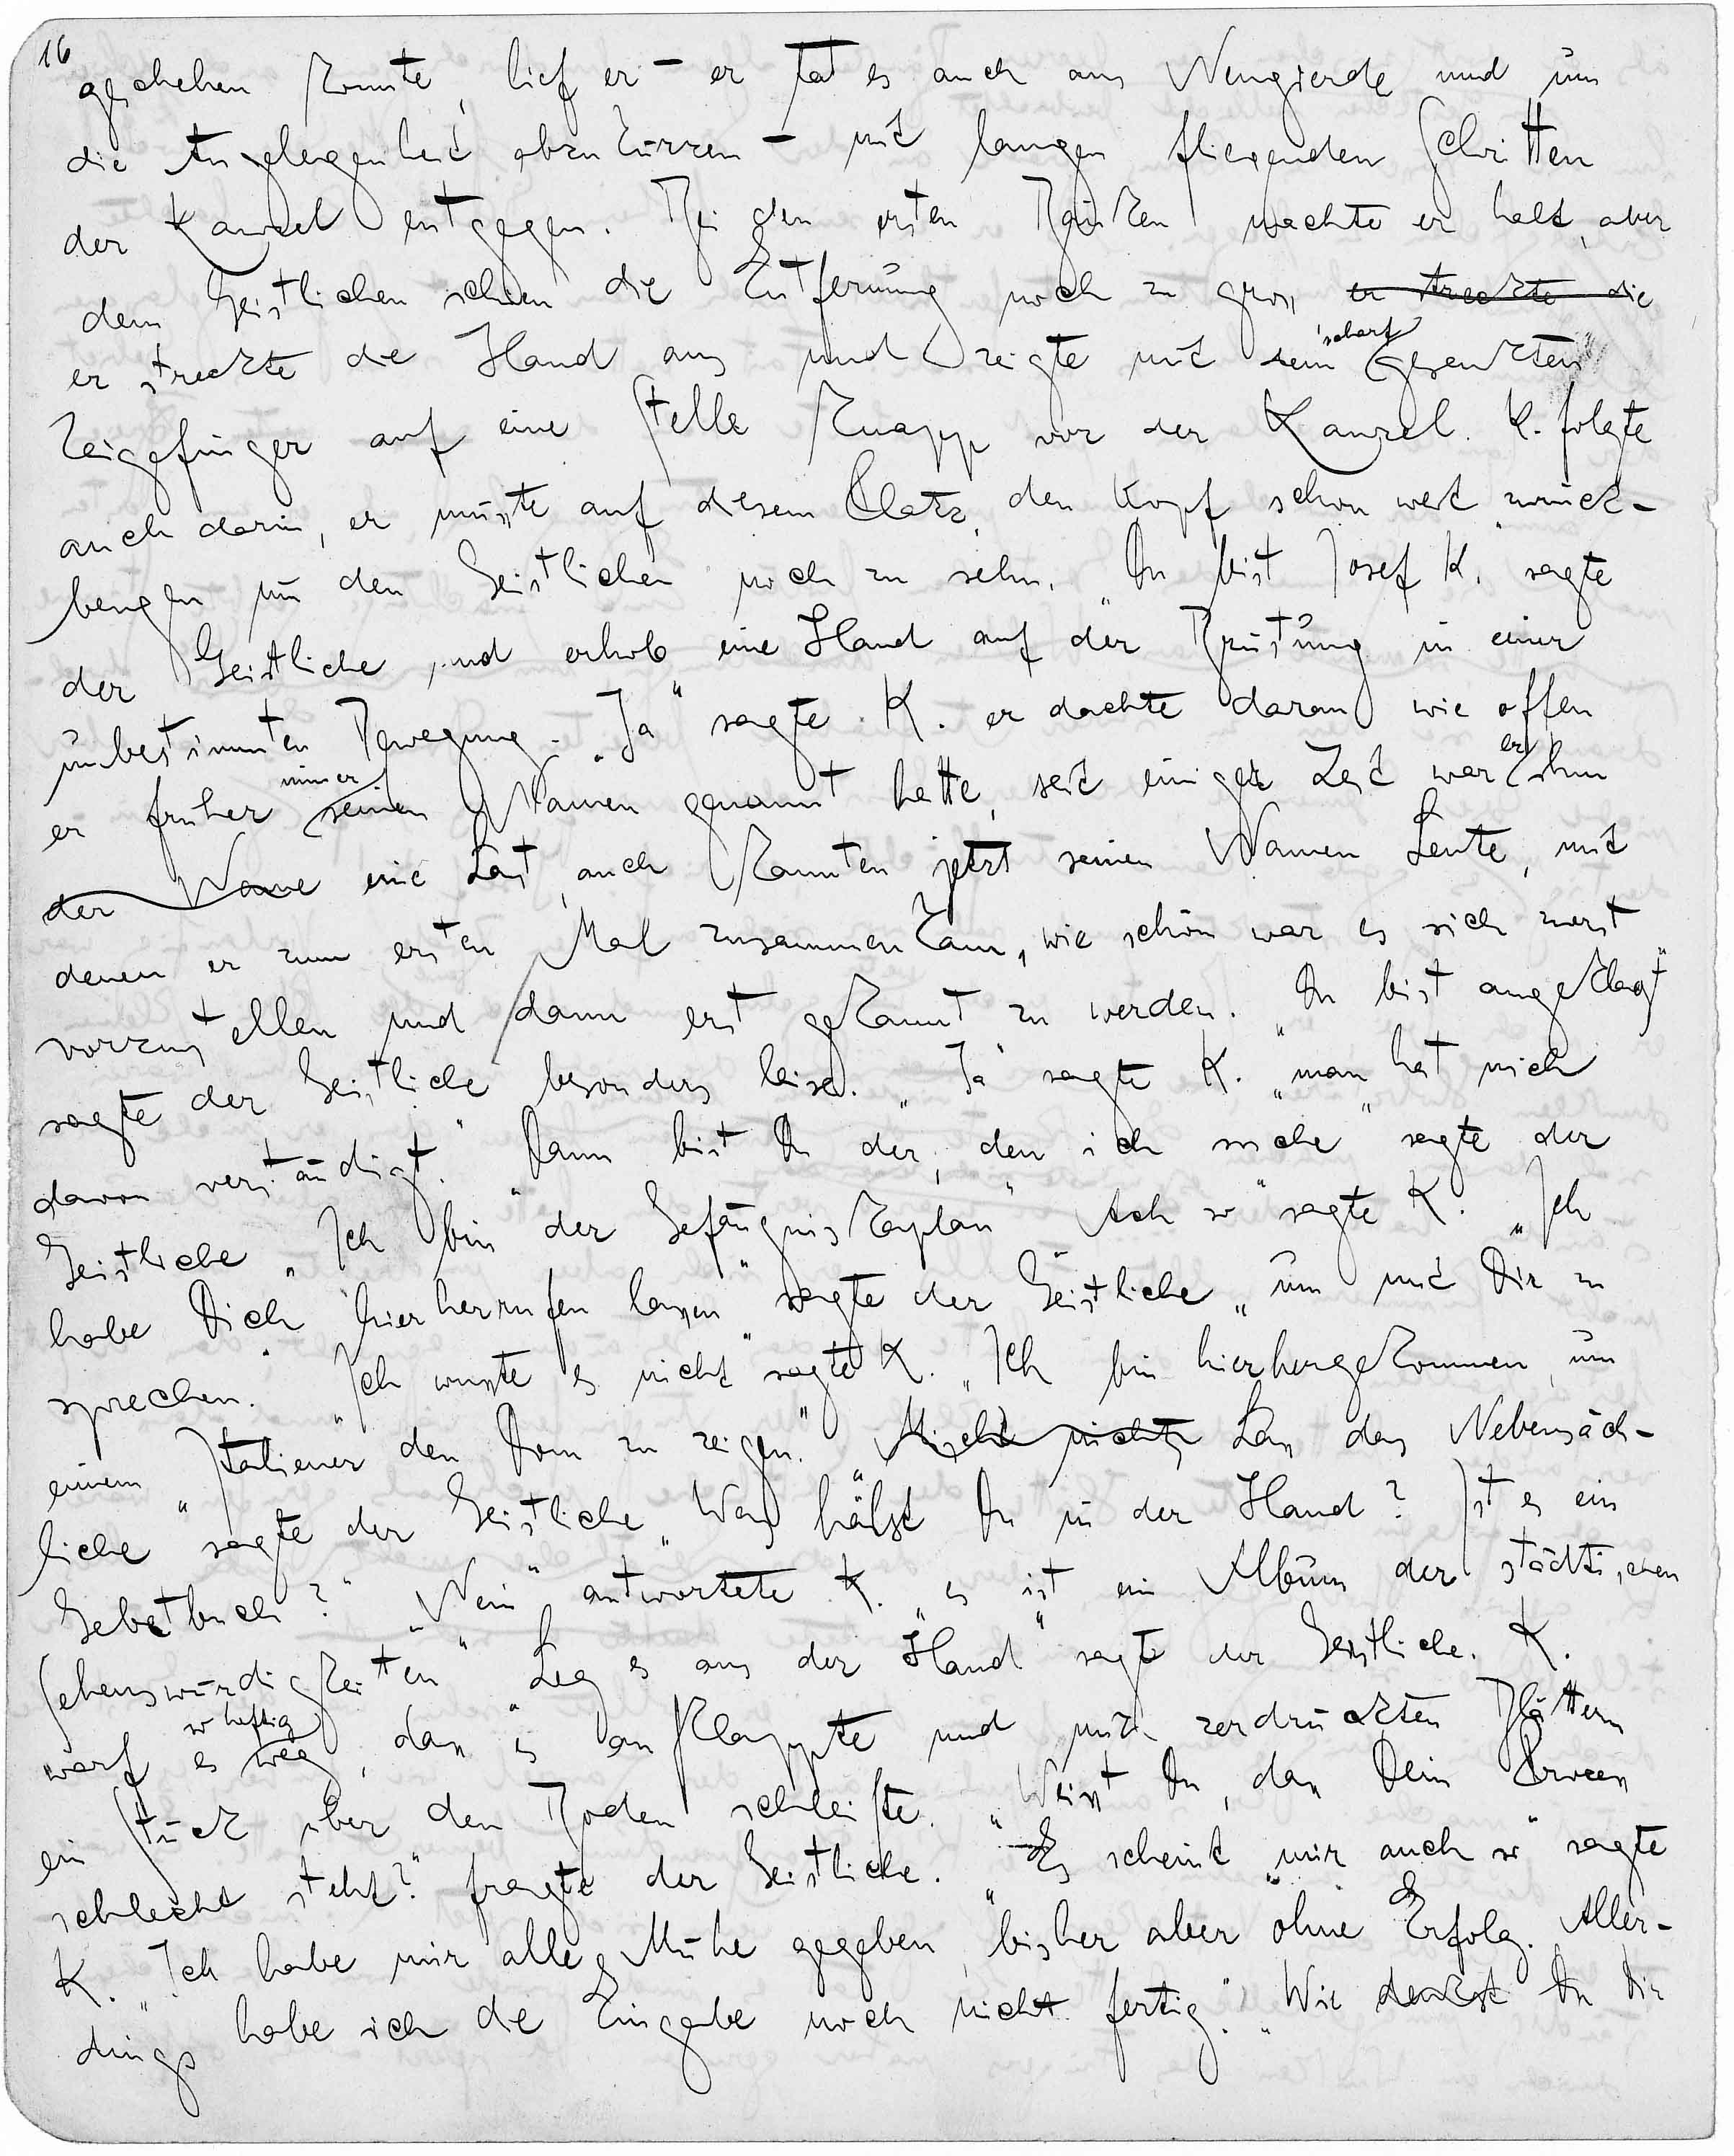 16
geschehen konnte, lief er – er tat es auch aus Neugierde und um
die Angelegenheit abzukürzen – mit langen fliegenden Schritten
der Kanzel entgegen. Bei den ersten Bänken machte er halt, aber
dem Geistlichen schien die Entfernung noch zu gross er streckte die
er streckte die Hand aus und zeigte mit dem scharf gesenkten
Zeigefinger auf eine Stelle knapp vor der Kanzel. K. folgte
auch darin, er musste auf diesem Platz den Kopf schon weit zurück-
beugen um den Geistlichen noch zu sehn. „Du bist Josef K. sagte
der Geistliche und erhob eine Hand auf der Brüstung in einer
unbestimmten Bewegung. „Ja“ sagte K. er dachte daran wie offen
er früher immer seinen Namen genannt hatte, seit einiger Zeit war er ihm
der Name eine Last, auch kannten jetzt seinen Namen Leute, mit
denen er zum ersten Mal zusammenkam, wie schön war es sich zuerst
vorzustellen und dann erst gekannt zu werden. „Du bist angeklagt“
sagte der Geistliche besonders leise. „Ja“ sagte K. „man hat mich
davon verständigt.“ „Dann bist Du der, den ich suche“ sagte der
Geistliche „Ich bin der Gefängniskaplan“ „Ach so“ sagte K. „Ich
habe Dich hierherrufen lassen“ sagte der Geistliche „um mit Dir zu
sprechen.“ „Ich wusste es nicht“ sagte K. „Ich bin hierhergekommen, um
einem Italiener den Dom zu zeigen.“ „Nicht nichts Lass das Nebensäch-
liche“ sagte der Geistliche „Was hältst Du in der Hand? Ist es ein
Gebetbuch?“ „Nein“ antwortete K. „es ist ein Album der städtischen
Sehenswürdigkeiten“ „Leg es aus der Hand“ sagte der Geistliche. K.
warf es so heftig weg, dass es aufklappte und mit zerdrückten Blättern
ein Stück über den Boden schleifte. „Weisst Du, dass Dein Process
schlecht steht?“ fragte der Geistliche. „Es scheint mir auch so“ sagte
K. „Ich habe mir alle Mühe gegeben, bisher aber ohne Erfolg. Aller-
dings habe ich die Eingabe noch nicht fertig.“ „Wie denkst Du Dir